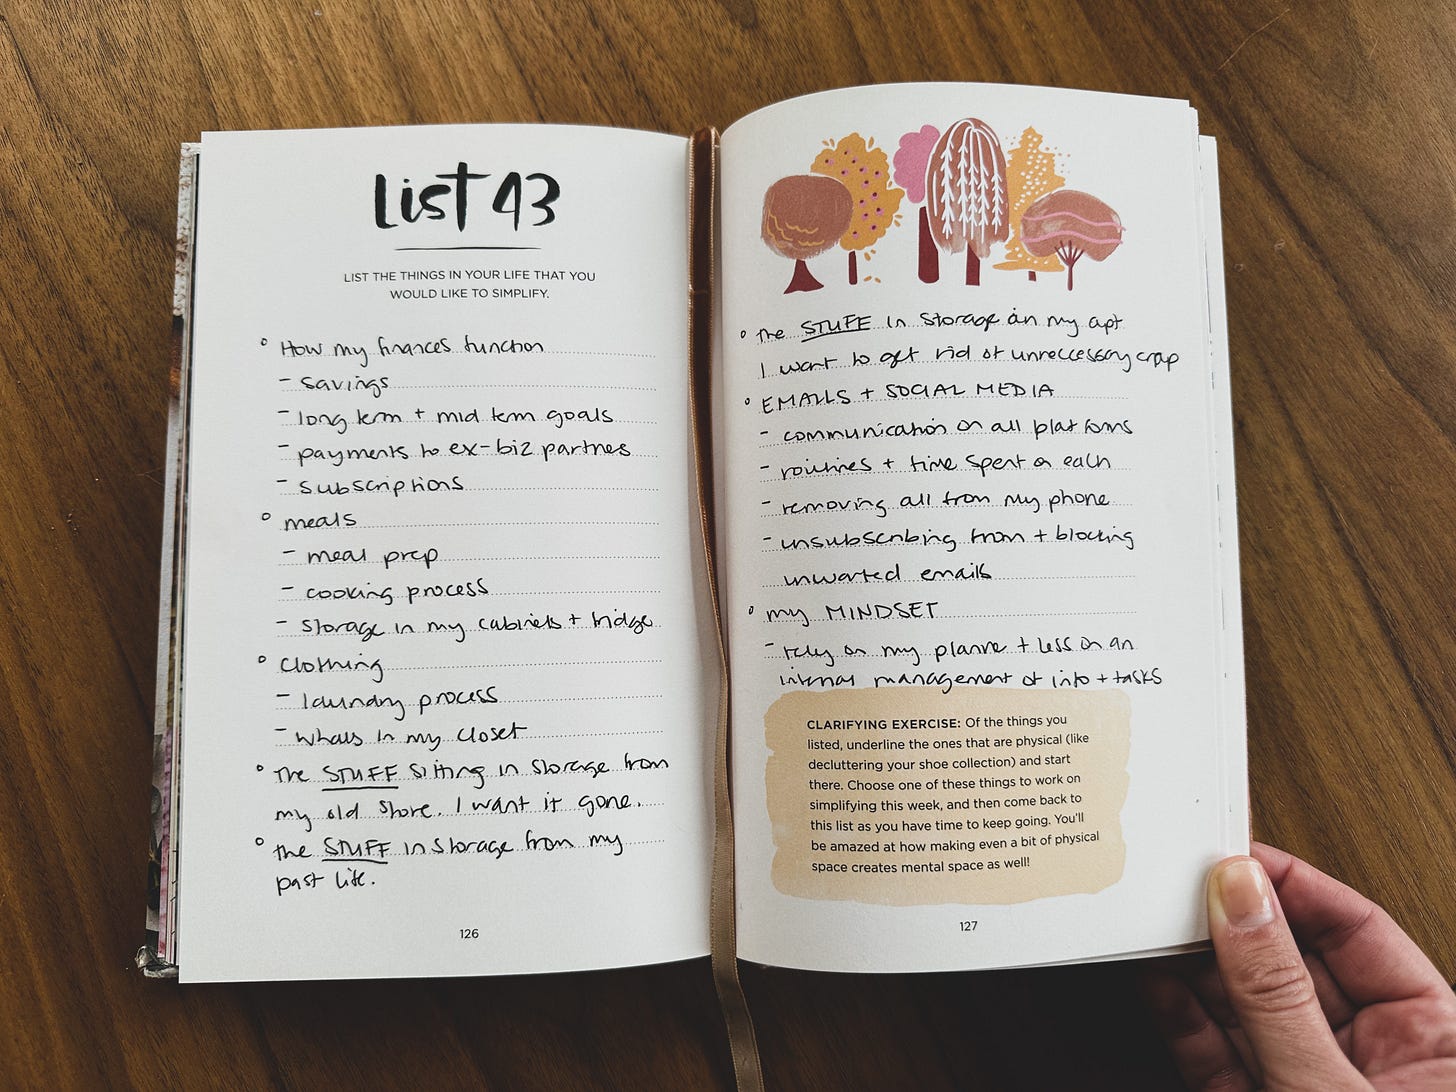 List 43
LIST THE THINGS IN YOUR LIFE THAT YOU
WOULD LIKE TO SIMPLIFY.
° How my finances function
- savings
- long term + mid term goals
- payments to ex-biz partners
- subscriptions
° meals
- meal prep
- cooking process
- storage in my cabinets + fridge
° Clothing
- laundry process
- whats in my closet
° The STUFF sitting in storage from
my old store. I want it gone.
° the STUFF in storage from my
past life.
126
° the STUFF in storage in my apt
I want to get rid of unneccessary crap
° EMAILS + SOCIAL MEDIA
- communication on all platforms
- routines + time spent on each
- removing all from my phone
- unsubscribing from + blocking
unwanted emails
° my MINDSET
- rely on my planner + less on an
internal management of info + tasks
CLARIFYING EXERCISE: Of the things you
listed, underline the ones that are physical (like
decluttering your shoe collection) and start
there. Choose one of these things to work on
simplifying this week, and then come back to
this list as you have time to keep going. You'll
be amazed at how making even a bit of physical
space creates mental space as well!
127